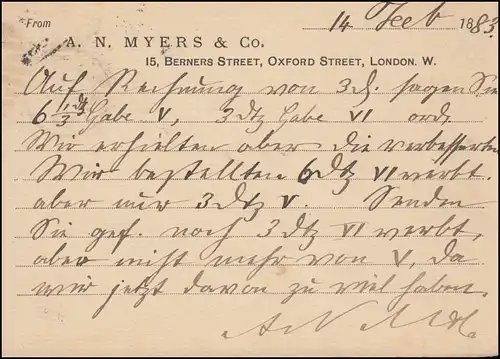 From 14 Feb 1883.
A. N. MYERS & Co.
15, BERNERS STREET, OXFORD STREET, LONDON. W.
Auf Rechnung von 3 d. sagen Sie
6 1/3 dtz Gabe V, 3 dtz Gabe VI ord.
Wir erhielten aber die verbesserten
Wir bestellten 6 dtz VI verb.
aber nur 3 dtz V. Senden
Sie gef. noch 3 dtz VI verb,
aber nicht mehr von V, da
wir jetzt davon zu viel haben.
A N M